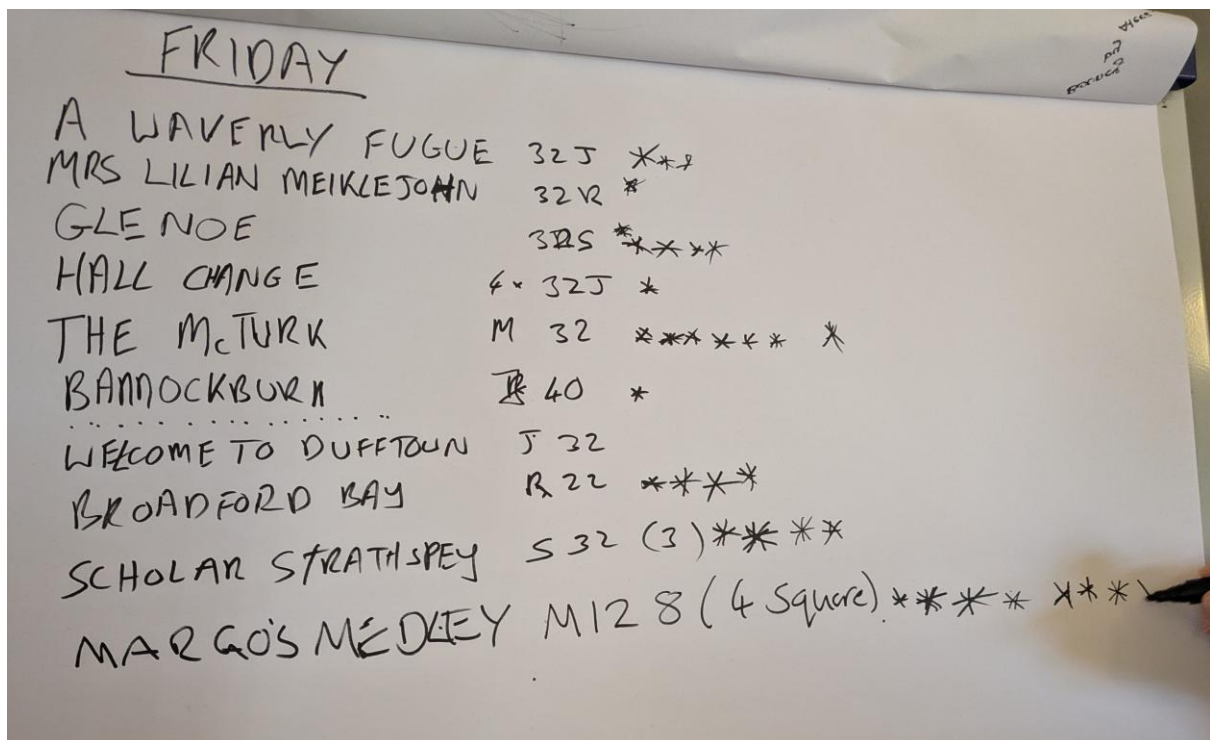 FRIDAY
A WAVERLY FUGUE 32J ***
MRS LILIAN MEIKLEJOHN 32R *
GLENOE 32S *****
HALL CHANGE 4x 32J *
THE McTURK M 32 ******* 
BANNOCKBURN 40 *
WELCOME TO DUFFTOWN J 32
BROADFORD BAY R 22 ****
SCHOLAR STRATHSPEY S 32 (3) ****
MARGO'S MEDLEY M128 (4 Square) ********